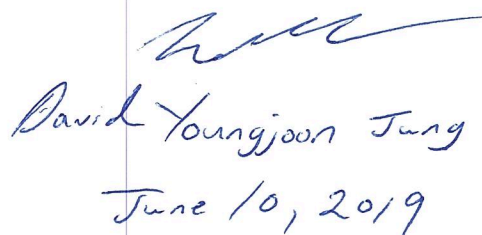 David Youngjoon Jung
June 10, 2019